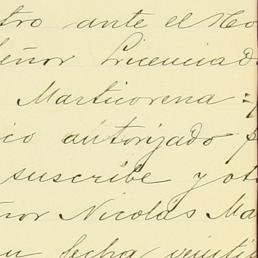 tro ante el No
eñor Licenciad
Marticorena =
ico autorizado p
suscribe y ot
ñor Nicolás Ma
u fecha veinti